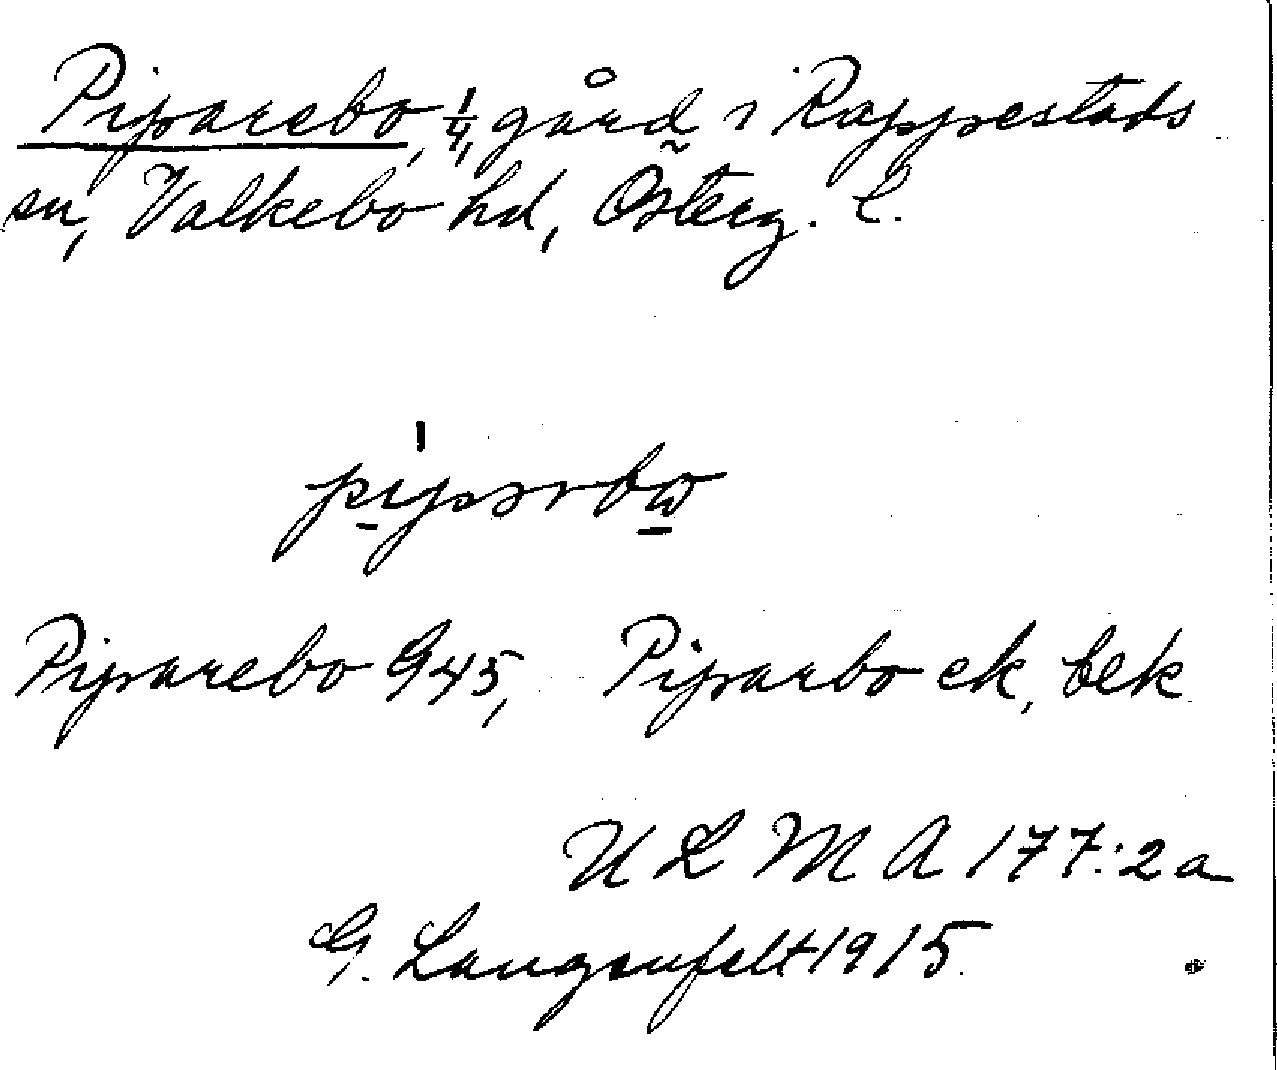 Piparebo, 1/4 gård i Rappestads
sn, Valkebo hd, Österg. l.
pipərbω
Piparebo G45, Piparbo ek, bek
ULMA 177:2a
G. Langenfelt 1915.